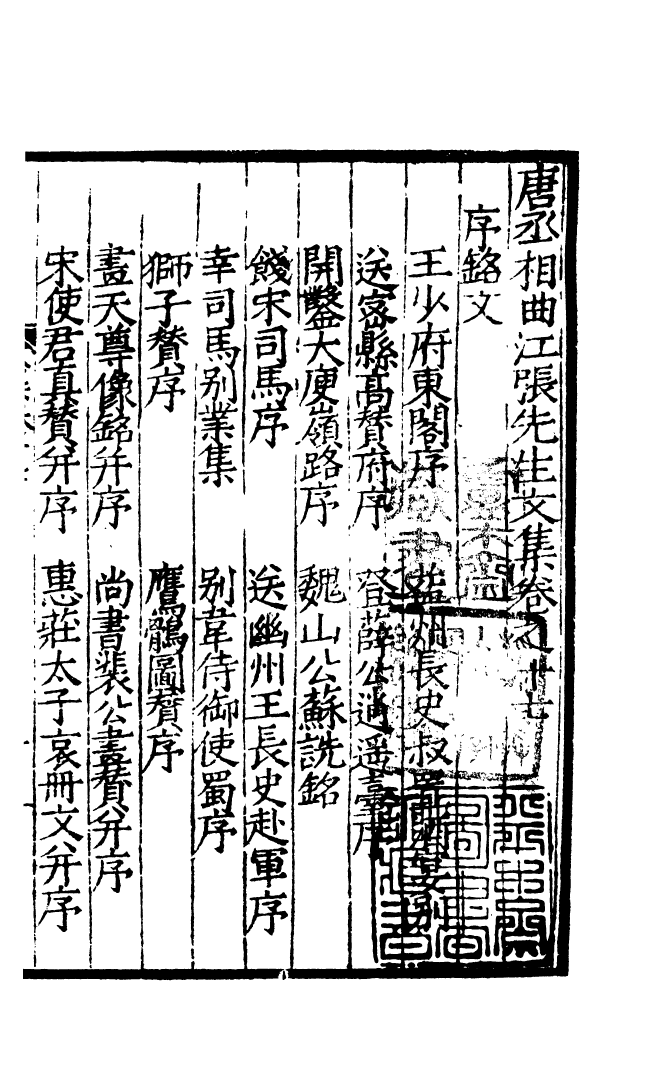 唐丞相曲江張先生文集卷之十七
序銘文
王少府東閣序 韶州長史叔置酒宴別
送密縣高贊府序 登薛公逍遥臺序
開鑿大庾嶺路序 魏山公蘇詵銘
餞宋司馬序 送幽州王長史赴軍序
幸司馬别業集 别韋侍御使蜀序
獅子贊序 鷹鶻圖贊序
畫天尊像銘并序 尚書裴公畫贊并序
宋使君真贊并序 惠莊太子哀冊文并序